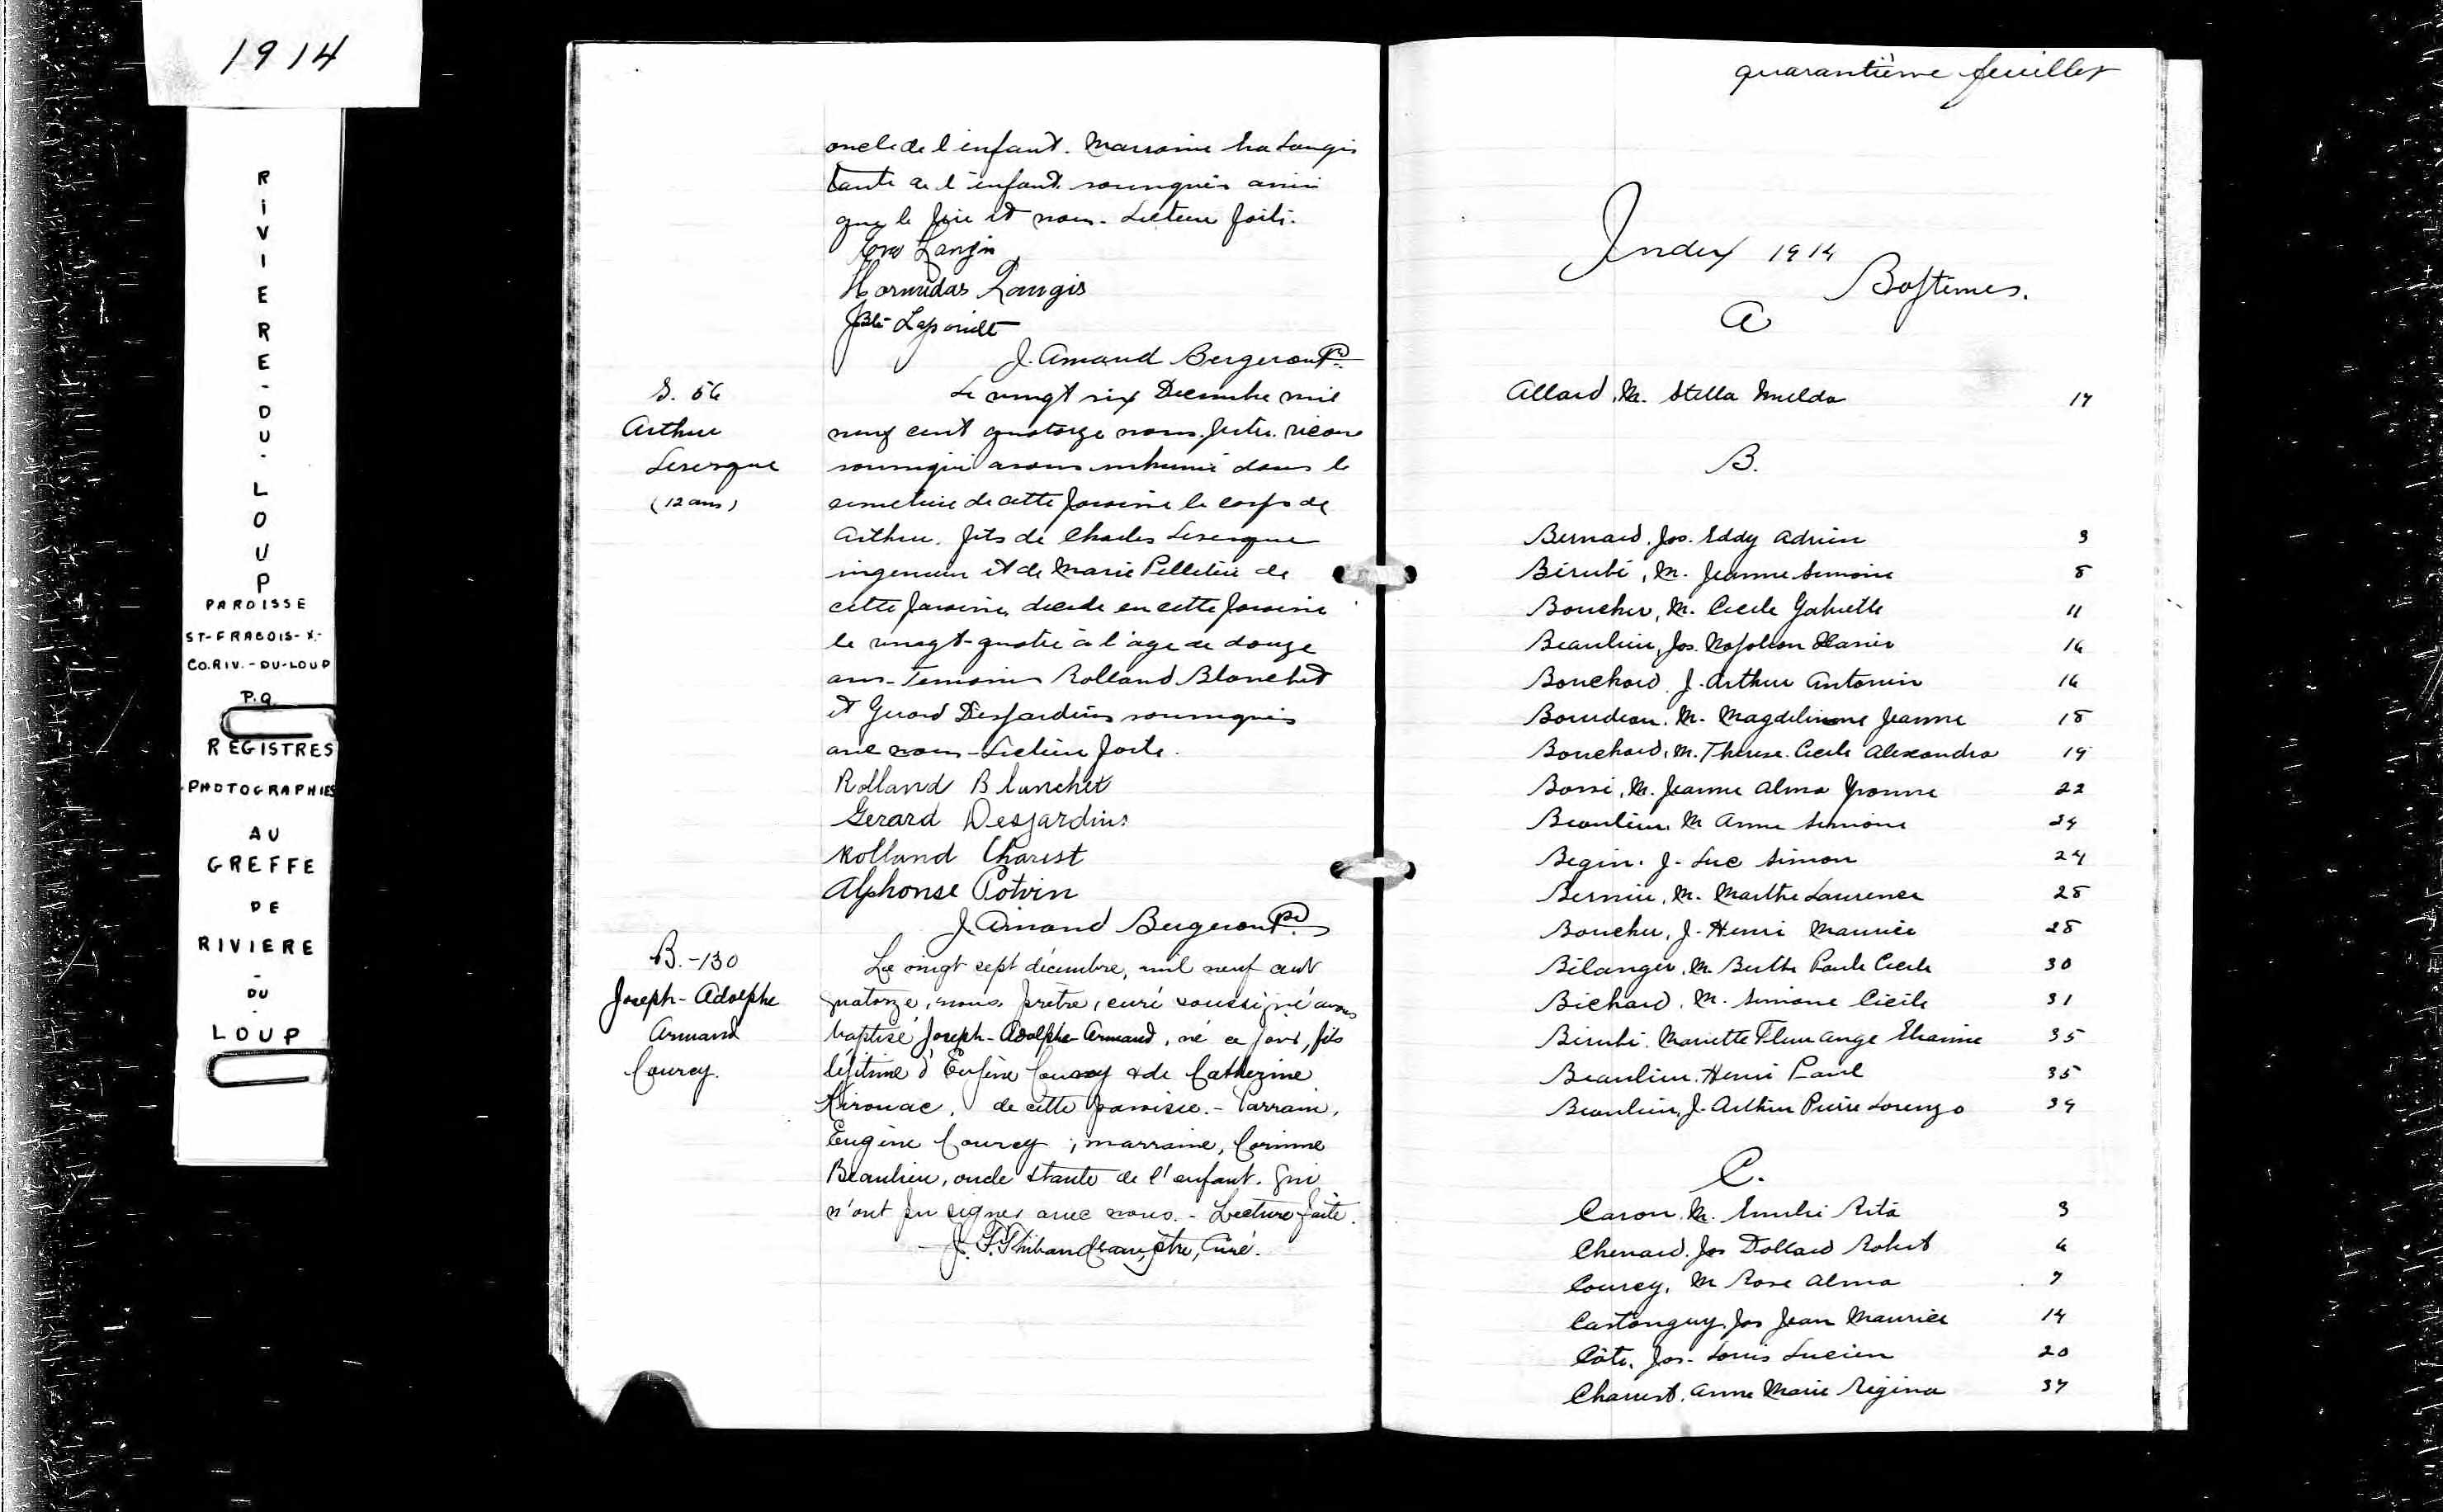 1914
RIVIERE-DU-LOUP
PAROISSE
ST-FRACOIS-X.-
CO.RIV.-DU-LOUP
P.Q
REGISTRES
PHOTOGRAPHIES
AU
GREFFE
DE
RIVIERE
-
DU
-
LOUP
oncle de l'enfant. Marraine Eva Langis
tante de l'enfant soussignés ainsi
que le père et nous. Lecture faite.
Eva Langis
Hormidas Langis
JBte Lapointe
J. Armand Bergeron Ptr
S. 56
Arthur
Levesque
(12 ans)
Le vingt six Decembre mil
neuf cent quatorze nous, prêtre vicaire
soussigné avons inhumé dans le
cimetière de cette paroisse le corps de
Arthur, fils de Charles Levesque
ingenieur et de Marie Pelletier de
cette paroisse, decede en cette paroisse
le vingt-quatre à l'age de douze
ans. Temoins Rolland Blanchet
et Gerard Desjardins soussignés
avec nous - Lecture faite.
Rolland Blanchet
Gerard Desjardins
Rolland Charest
Alphonse Potvin
J. Armand Bergeron Ptr
B.-130
Joseph-Adolphe
Armand
Courcy.
Le vingt sept décembre, mil neuf cent
quatorze, nous, prêtre, curé soussigné avons
baptisé Joseph-Adolphe-Armand, né ce jour, fils
légitime d'Eugène Courcy & de Catherine
Kirouac, de cette paroisse. - Parrain,
Eugène Courcy ; marraine, Corinne
Beaulieu, oncle & tante de l'enfant. qui
n'ont pu signer avec nous. - Lecture faite.
J. F. Thibaudeau, ptre, Curé.
quarantième feuillet
Index 1914
Baptêmes.
A
Allard, M. Stella Imelda 17
B.
Bernard, Jos. Eddy Adrien 3
Bérubé, M. Jeanne Simone 8
Boucher, M. Cecile Gabrielle 11
Beaulieu, Jos. Napoleon 16
Bouchard J. Arthur Antonin 16
Bourdeau. M. Magdeleine Jeanne 18
Bouchard, M. Therese Cecile Alexandra 19
Bossé, M. Jeanne Alma Yvonne 22
Beaulieu, M Anna Simone 24
Begin. J. Luc Simon 24
Bernier, M. Marthe Laurence 28
Boucher, J. Henri Maurice 28
Bélanger, M. Berthe Paule Cecile 30
Bichard, M. Simone Cécile 31
Bérubé. Mariette Fleur Ange 35
Beaulieu. Henri Paul 35
Beaulieu, J. Arthur Pierre Lorenzo 39
C.
Caron. M. Emelie Rita 3
Chenard. Jos Dollard Robert 6
Courcy, M Rose Alma 7
Castonguy, Jos Jean Maurice 14
Côté, Jos-Louis Lucien 20
Charest, Anne Marie Régina 37